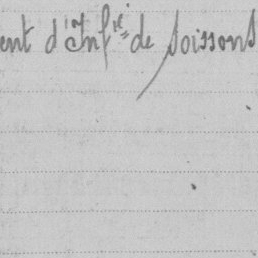 ent d'Inf^ie de Soissons